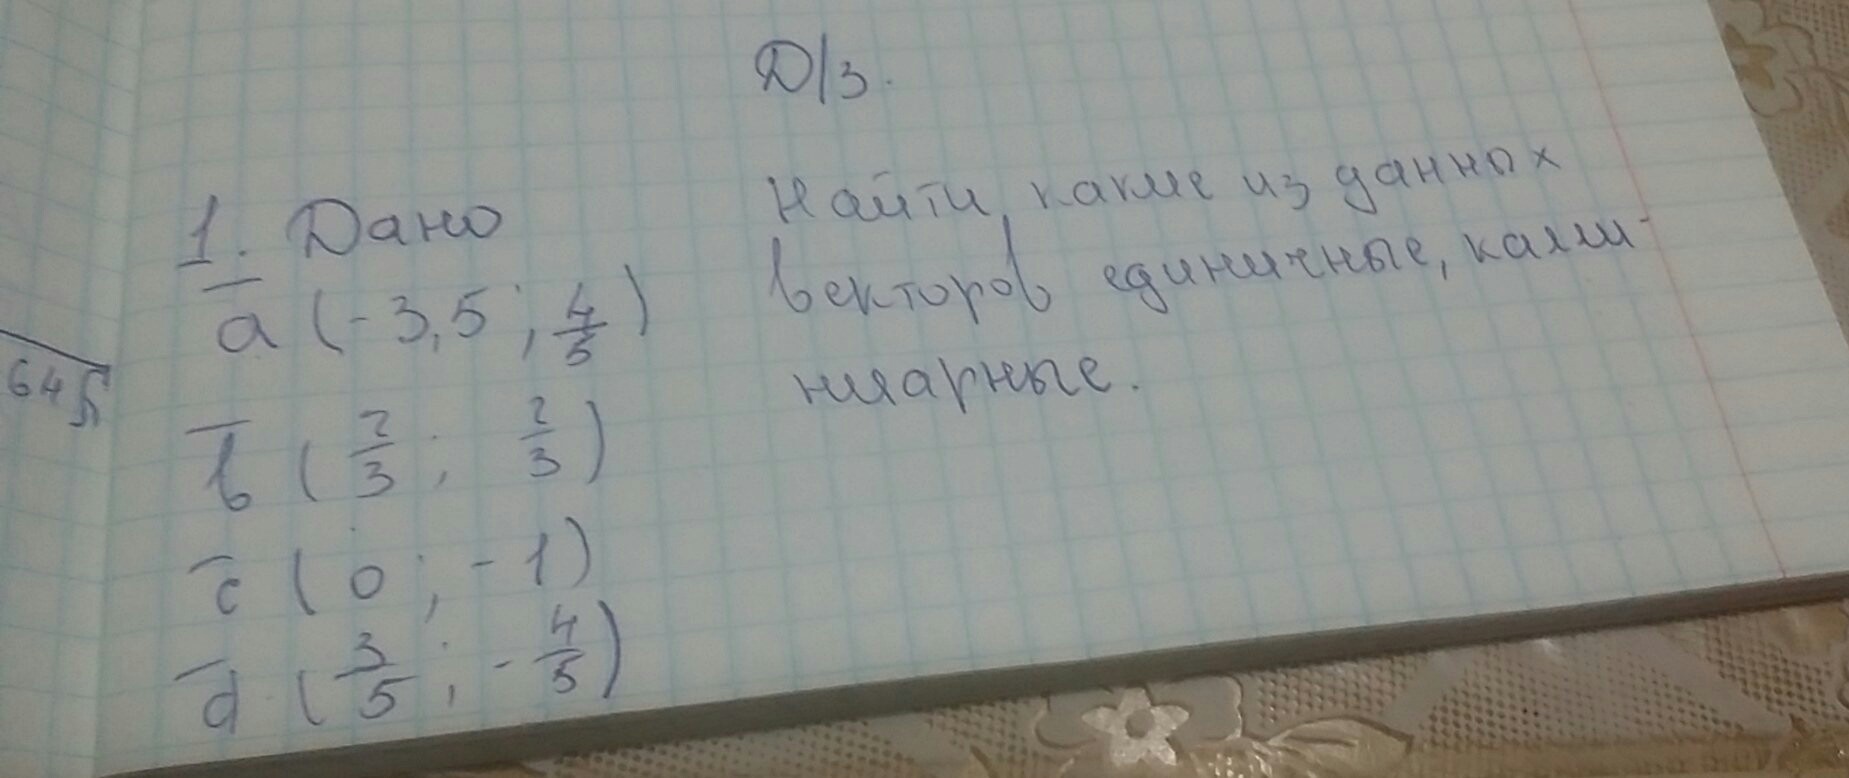 Д/З.
1. Дано
a (-3,5 ; 4/5)
b (2/3 ; 2/3)
c (0 ; -1)
d (3/5 ; -4/5)
Найти, какие из данных
векторов единичные, калли-
ниарные.
64